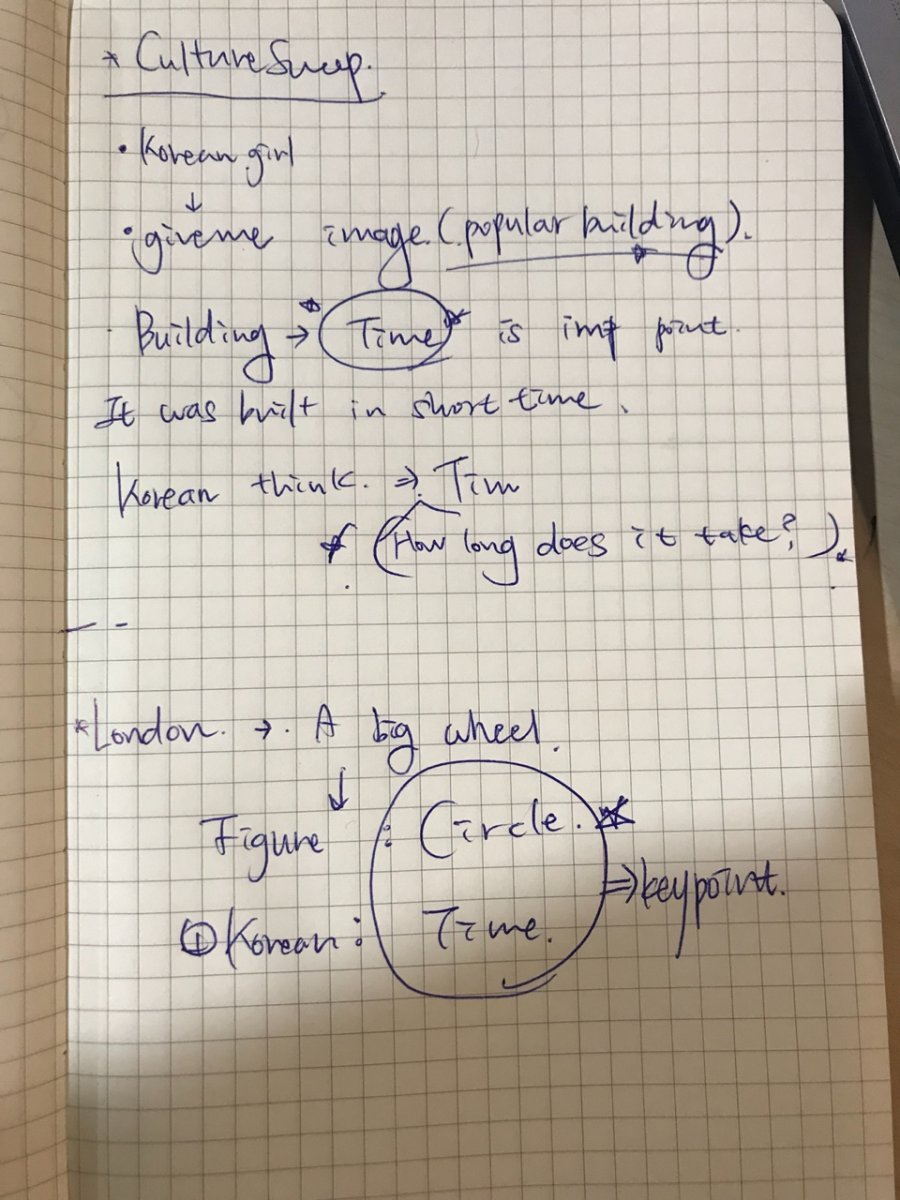 * Culture Swap.
· Korean girl
↓
· give me image. (popular building).
· Building → Time is imp point.
It was built in short time.
Korean think. ⇒ Tim
(How long does it take?)
* London. → A big wheel.
↓
Figure : Circle.
⊕ Korean : Time.
⇒ key point.